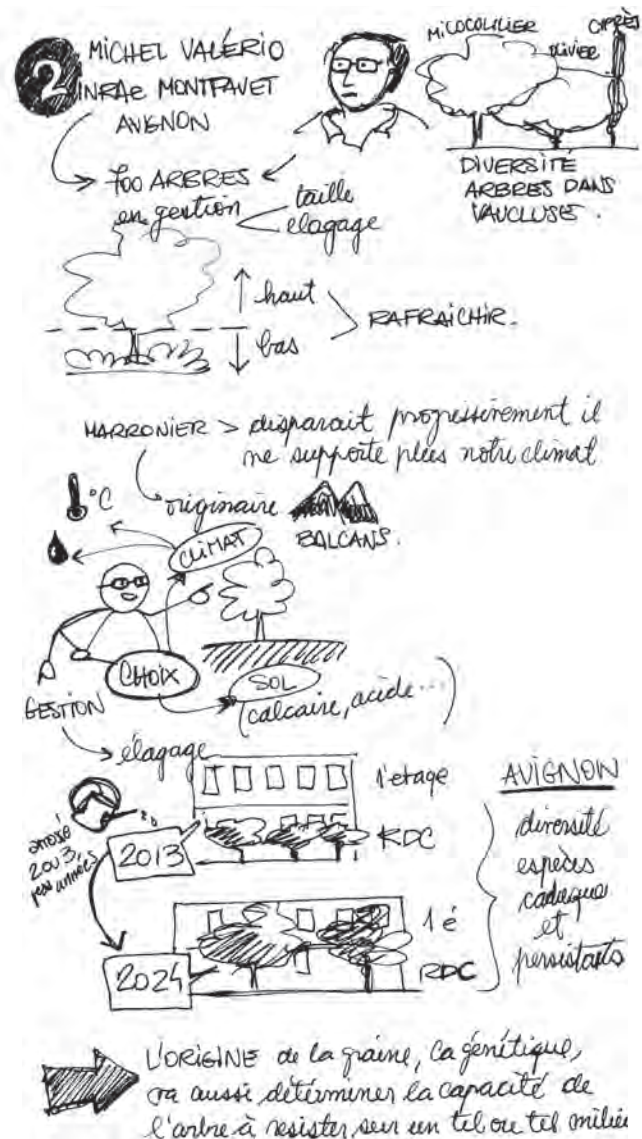 2
MICHEL VALÉRIO
INRAe MONTFAVET
AVIGNON
MICOCOULIER
OLIVIER
CYPRÈS
DIVERSITÉ
ARBRES DANS
VAUCLUSE.
700 ARBRES
en gestion
taille
elagage
haut
bas
RAFRAÎCHIR.
MARRONIER > disparait progressivement il
ne supporte plus notre climat
originaire
BALCANS.
°C
CLIMAT
CHOIX
SOL
(calcaire, acide...)
GESTION
élagage
1'etage
RDC
arrosé
2 ou 3
années
2013
2024
1é
RDC
AVIGNON
diversité
espèces
caduque
et
persistants
L'ORIGINE de la graine, la génétique,
va aussi déterminer la capacité de
l'arbre à resister sur un tel ou tel milieu